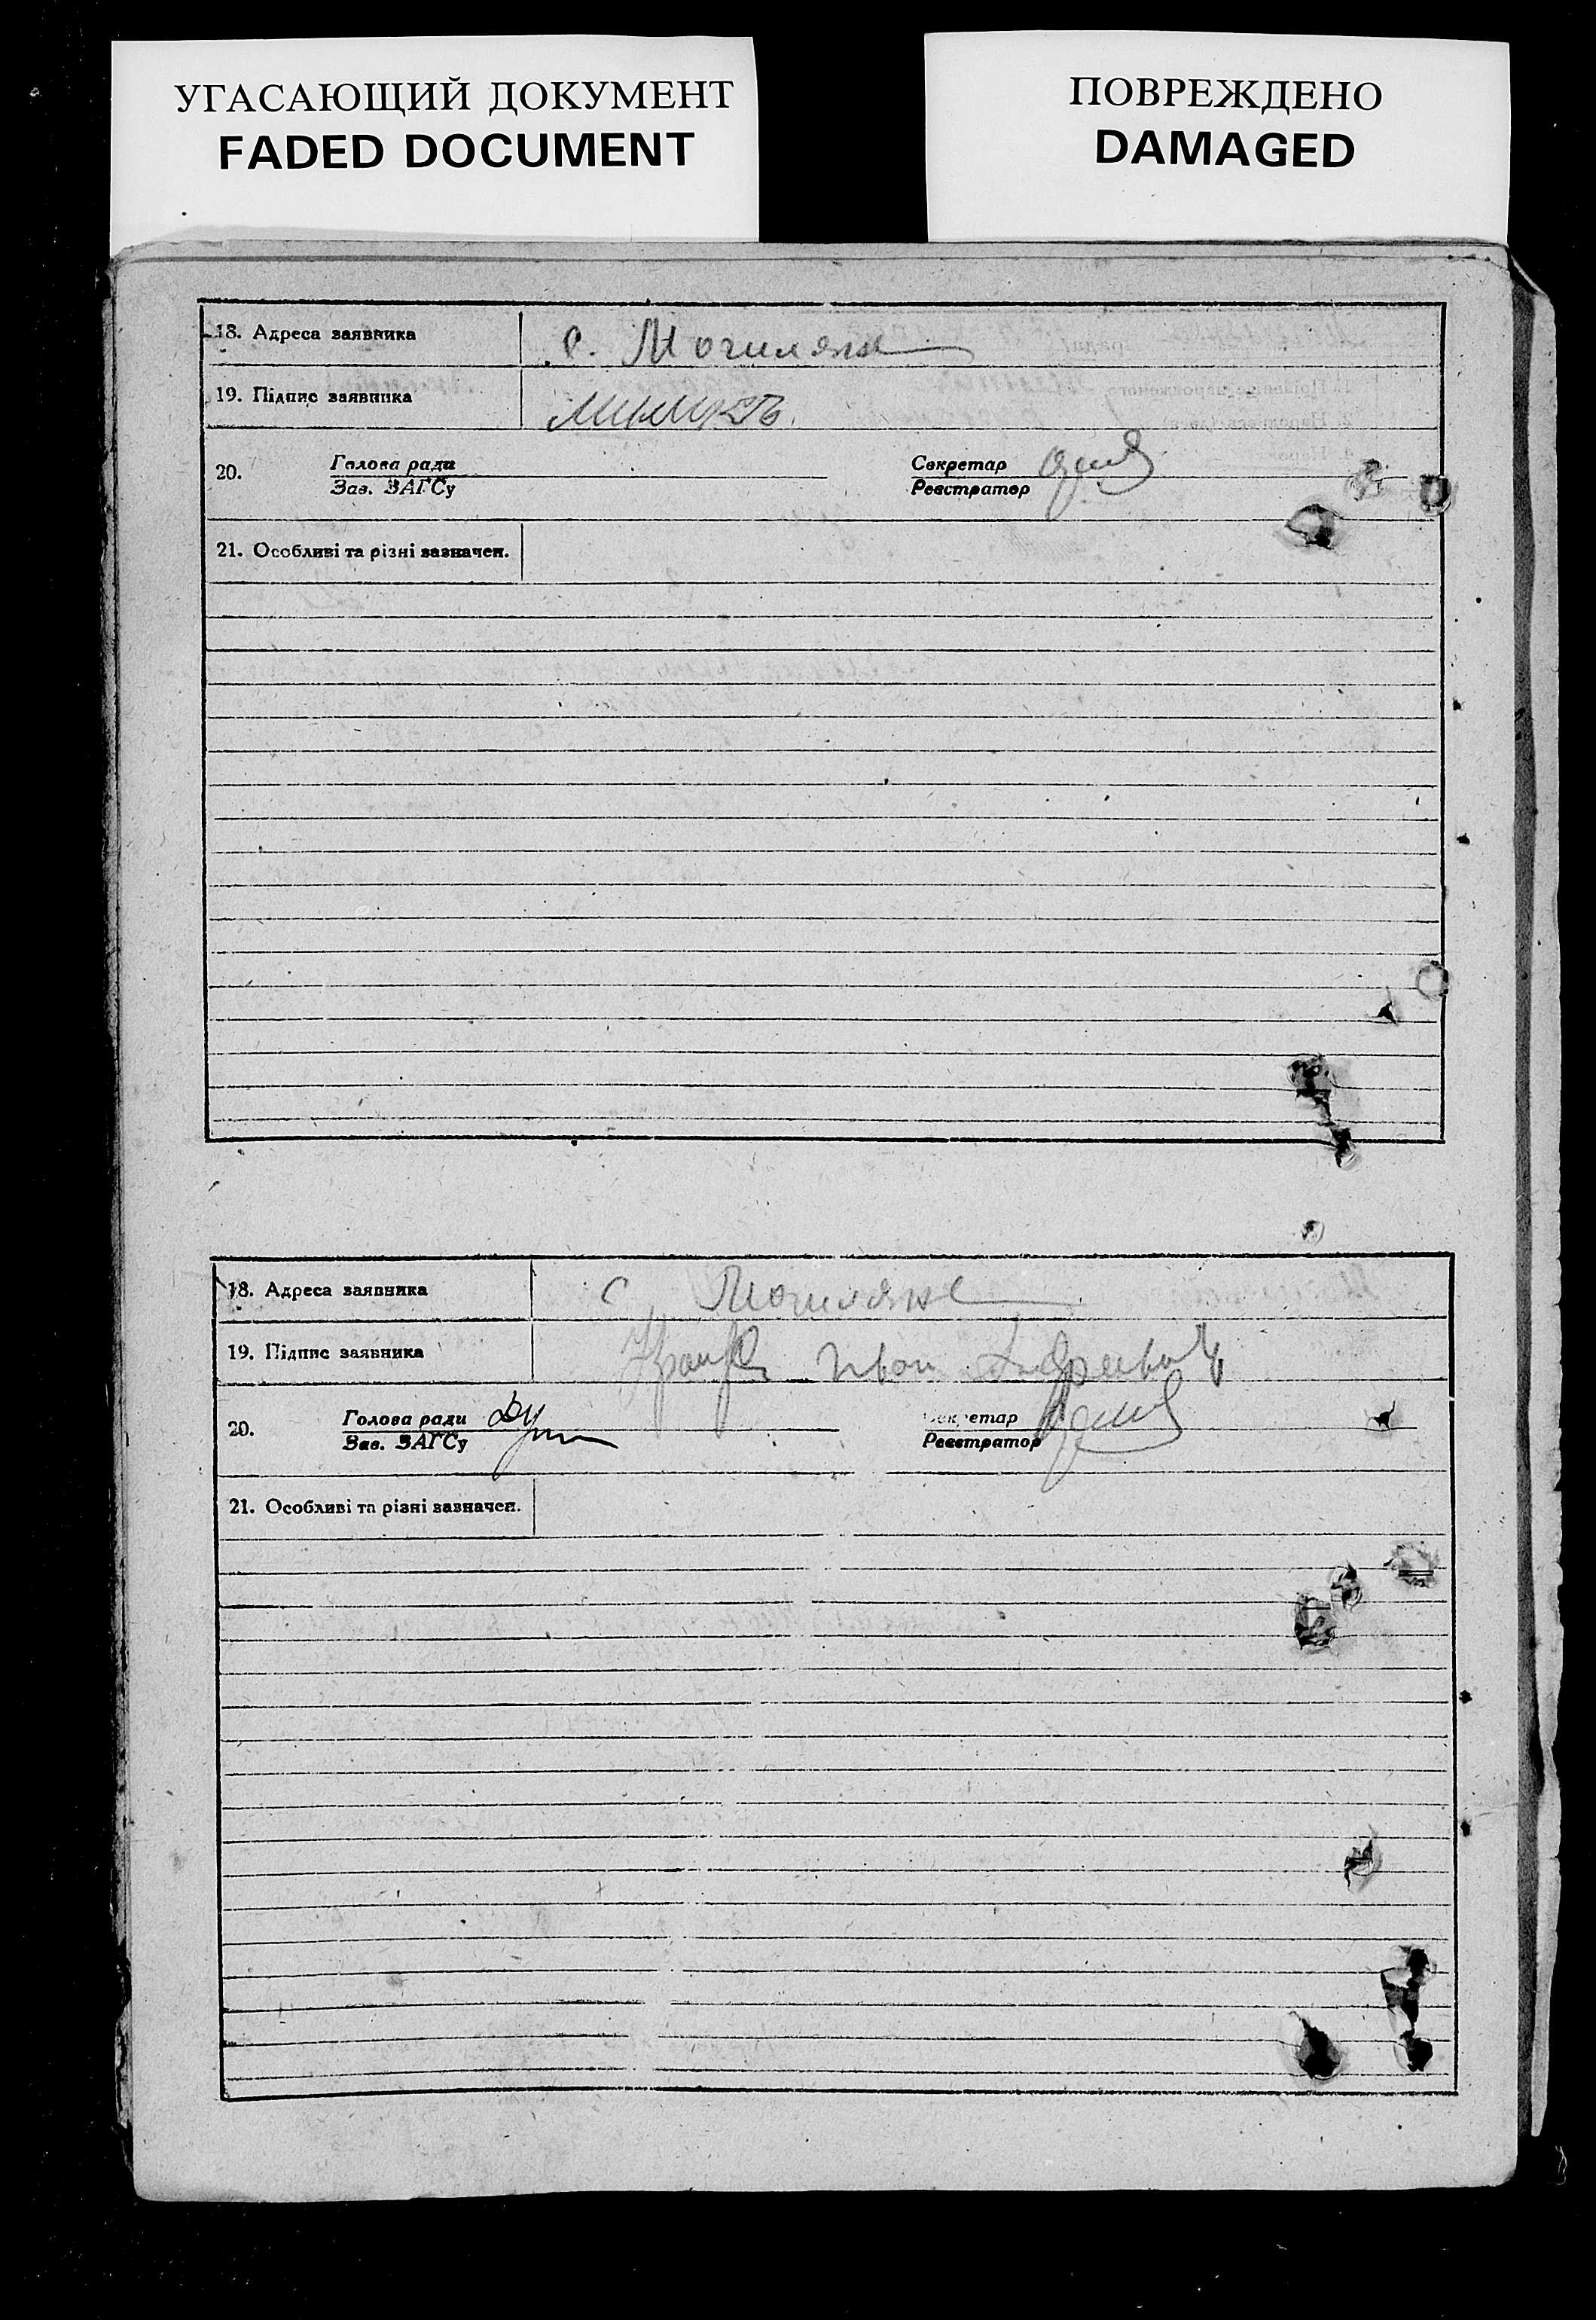 УГАСАЮЩИЙ ДОКУМЕНТ
FADED DOCUMENT
ПОВРЕЖДЕНО
DAMAGED
18. Адреса заявника с. Могиляне
19. Підпис заявника
20. Голова ради Секретар
Зав. ЗАГСу Реєстратор
21. Особливі та різні зазначен.
18. Адреса заявника с Могиляне
19. Підпис заявника Іван
20. Голова ради Секретар
Зав. ЗАГСу Реєстратор
21. Особливі та різні зазначен.